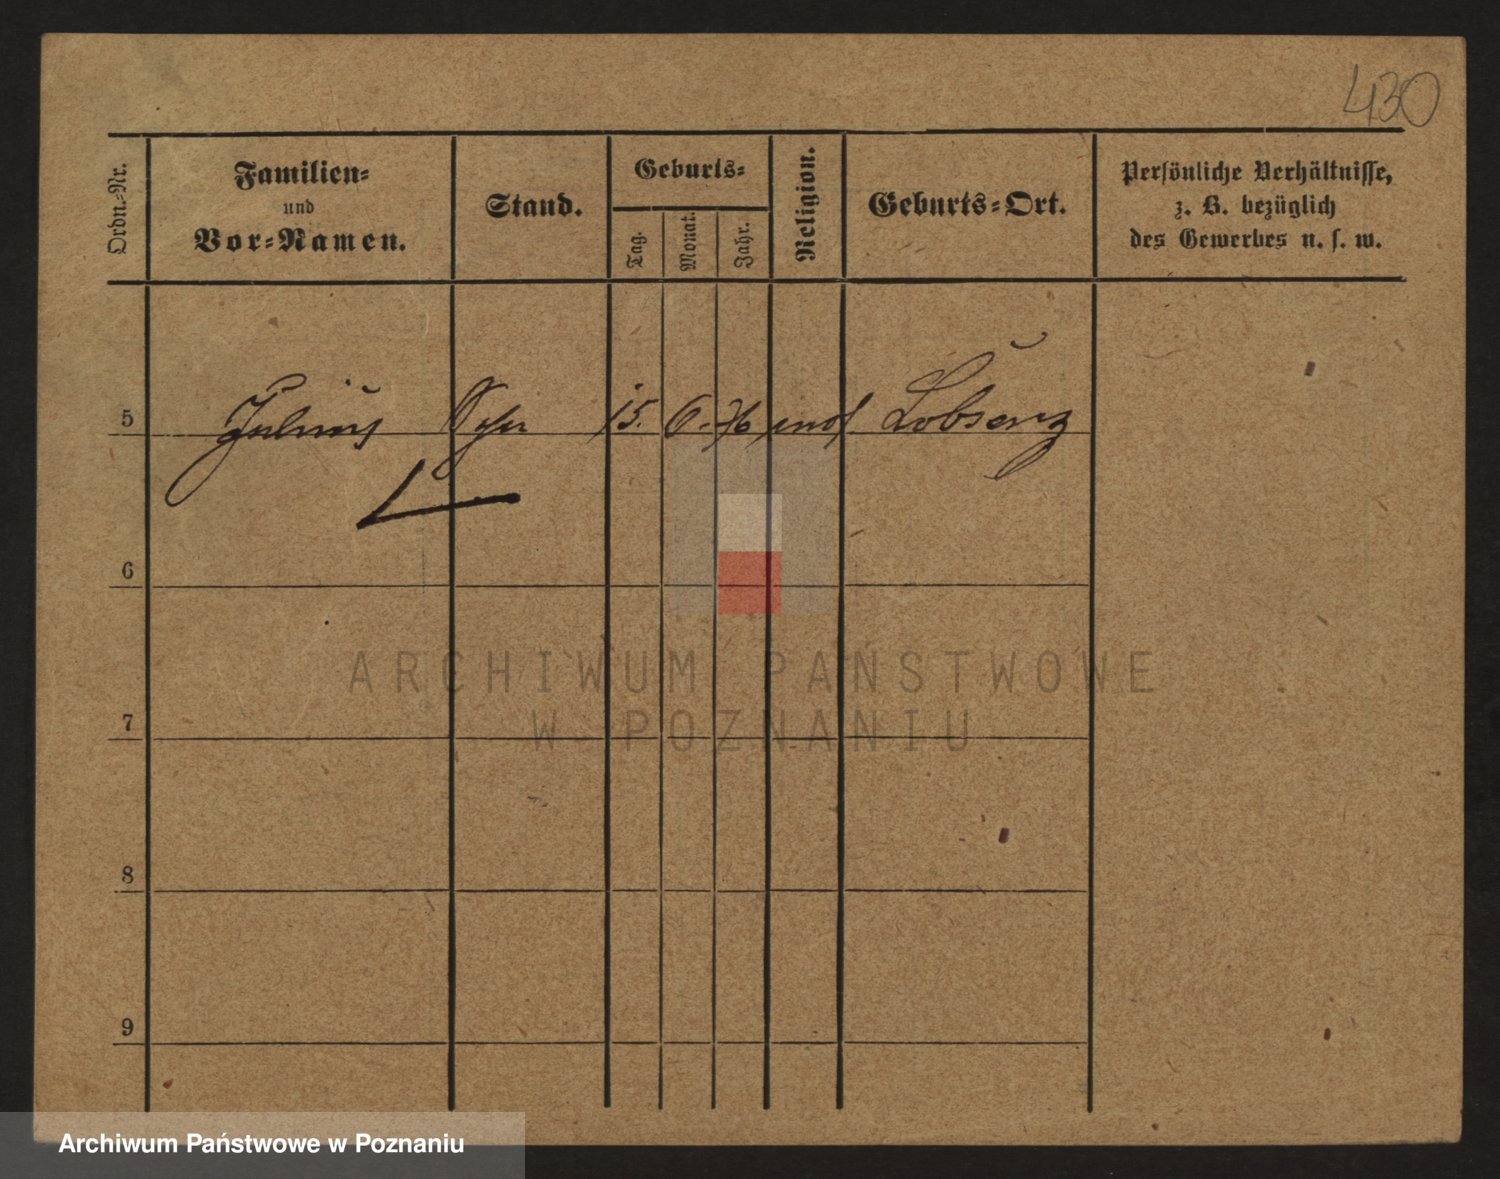 430
Ordn.-Nr.
Familien-
und
Vor-Namen.
Stand.
Geburts-
Tag.
Monat.
Jahr.
Religion.
Geburts-Ort.
Persönliche Verhältnisse,
z. B. bezüglich
des Gewerbes u. s. w.
5 Julius 15. 6. 76 mos Lobsenz
6
ARCHIWUM PAŃSTWOWE
W POZNANIU
7
8
9
Archiwum Państwowe w Poznaniu